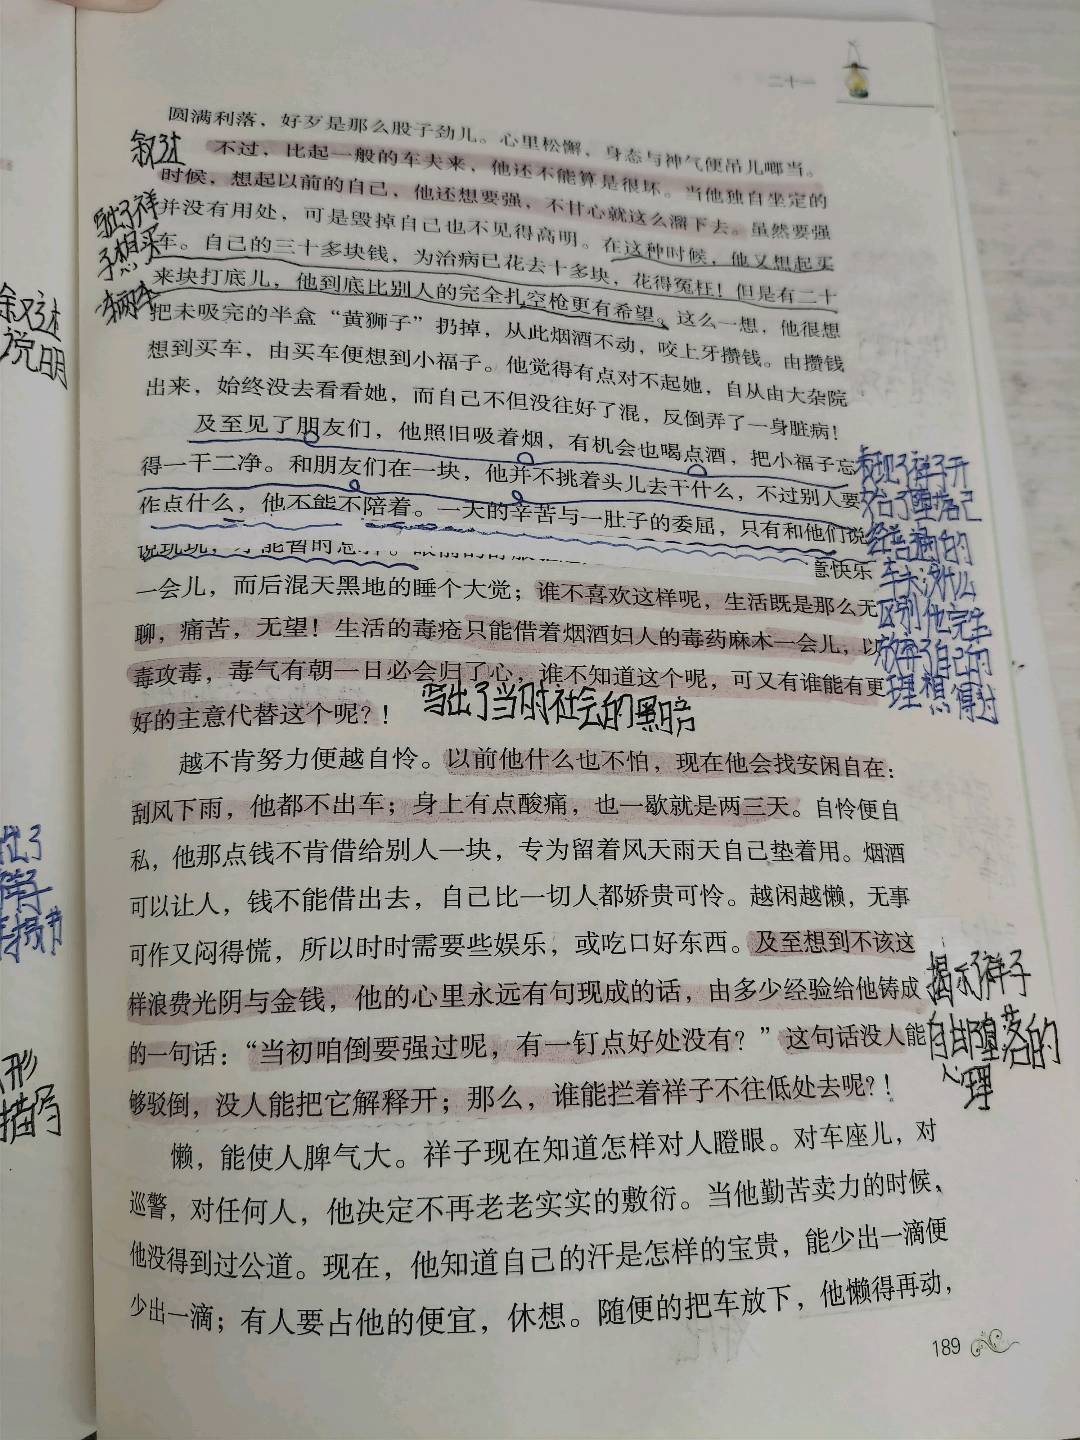 二十一
圆满利落，好歹是那么股子劲儿。心里松懈，身态与神气便吊儿啷当。
叙述
不过，比起一般的车夫来，他还不能算是很坏。当他独自坐定的
时候，想起以前的自己，他还想要强，不甘心就这么溜下去。虽然要强
并没有用处，可是毁掉自己也不见得高明。在这种时候，他又想起买
车。自己的三十多块钱，为治病已花去十多块，花得冤枉！但是有二十
来块打底儿，他到底比别人的完全扎空枪更有希望。这么一想，他很想
把未吸完的半盒“黄狮子”扔掉，从此烟酒不动，咬上牙攒钱。由攒钱
想到买车，由买车便想到小福子。他觉得有点对不起她，自从由大杂院
出来，始终没去看看她，而自己不但没往好了混，反倒弄了一身脏病！
写出了祥
子想买
辆车
及至见了朋友们，他照旧吸着烟，有机会也喝点酒，把小福子忘
得一干二净。和朋友们在一块，他并不挑着头儿去干什么，不过别人要
作点什么，他不能不陪着。一天的辛苦与一肚子的委屈，只有和他们说
说玩玩，才能暂时忘
意快乐
一会儿，而后混天黑地的睡个大觉；谁不喜欢这样呢，生活既是那么无
聊，痛苦，无望！生活的毒疮只能借着烟酒妇人的毒药麻木一会儿，以
毒攻毒，毒气有朝一日必会归了心，谁不知道这个呢，可又有谁能有更
好的主意代替这个呢？！
写出了当时社会的黑暗
表现了祥子开
始了堕落已
经普通的
车夫没什么
区别他完全
放弃了自己的
理想得过
越不肯努力便越自怜。以前他什么也不怕，现在他会找安闲自在：
刮风下雨，他都不出车；身上有点酸痛，也一歇就是两三天。自怜便自
私，他那点钱不肯借给别人一块，专为留着风天雨天自己垫着用。烟酒
可以让人，钱不能借出去，自己比一切人都娇贵可怜。越闲越懒，无事
可作又闷得慌，所以时时需要些娱乐，或吃口好东西。及至想到不该这
样浪费光阴与金钱，他的心里永远有句现成的话，由多少经验给他铸成
的一句话：“当初咱倒要强过呢，有一钉点好处没有？”这句话没人能
够驳倒，没人能把它解释开；那么，谁能拦着祥子不往低处去呢？！
揭示了祥子
自由堕落的
心理
懒，能使人脾气大。祥子现在知道怎样对人瞪眼。对车座儿，对
巡警，对任何人，他决定不再老老实实的敷衍。当他勤苦卖力的时候，
他没得到过公道。现在，他知道自己的汗是怎样的宝贵，能少出一滴便
少出一滴；有人要占他的便宜，休想。随便的把车放下，他懒得再动，
189
叙述
说明
祥子
描写